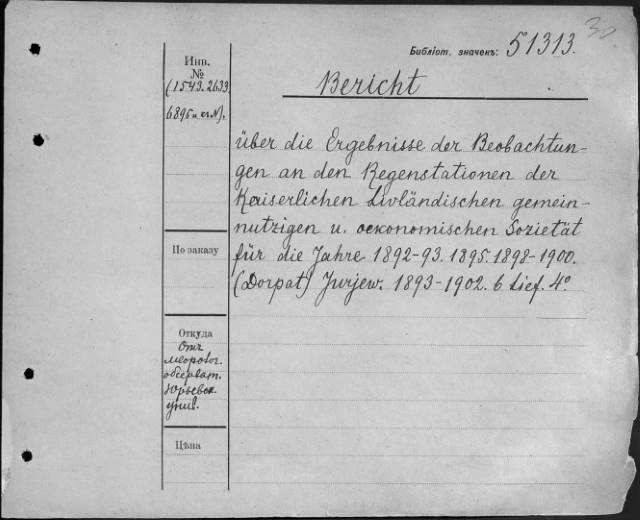 30
Библіот. значекъ: 51313.
Инв.
№
(1543. 2633
6895 и сл. №).
Bericht
über die Ergebnisse der Beobachtun-
gen an den Regenstationen der
Kaiserlichen Livländischen gemein-
nutzigen u. oekonomischen Sozietät
für die Jahre 1892-93. 1895. 1898-1900.
(Dorpat) Jurjew. 1893-1902. 6 Lief. 4°
По заказу
Откуда
Отъ
обсерват.
Юрьевск.
унив.
Цѣна